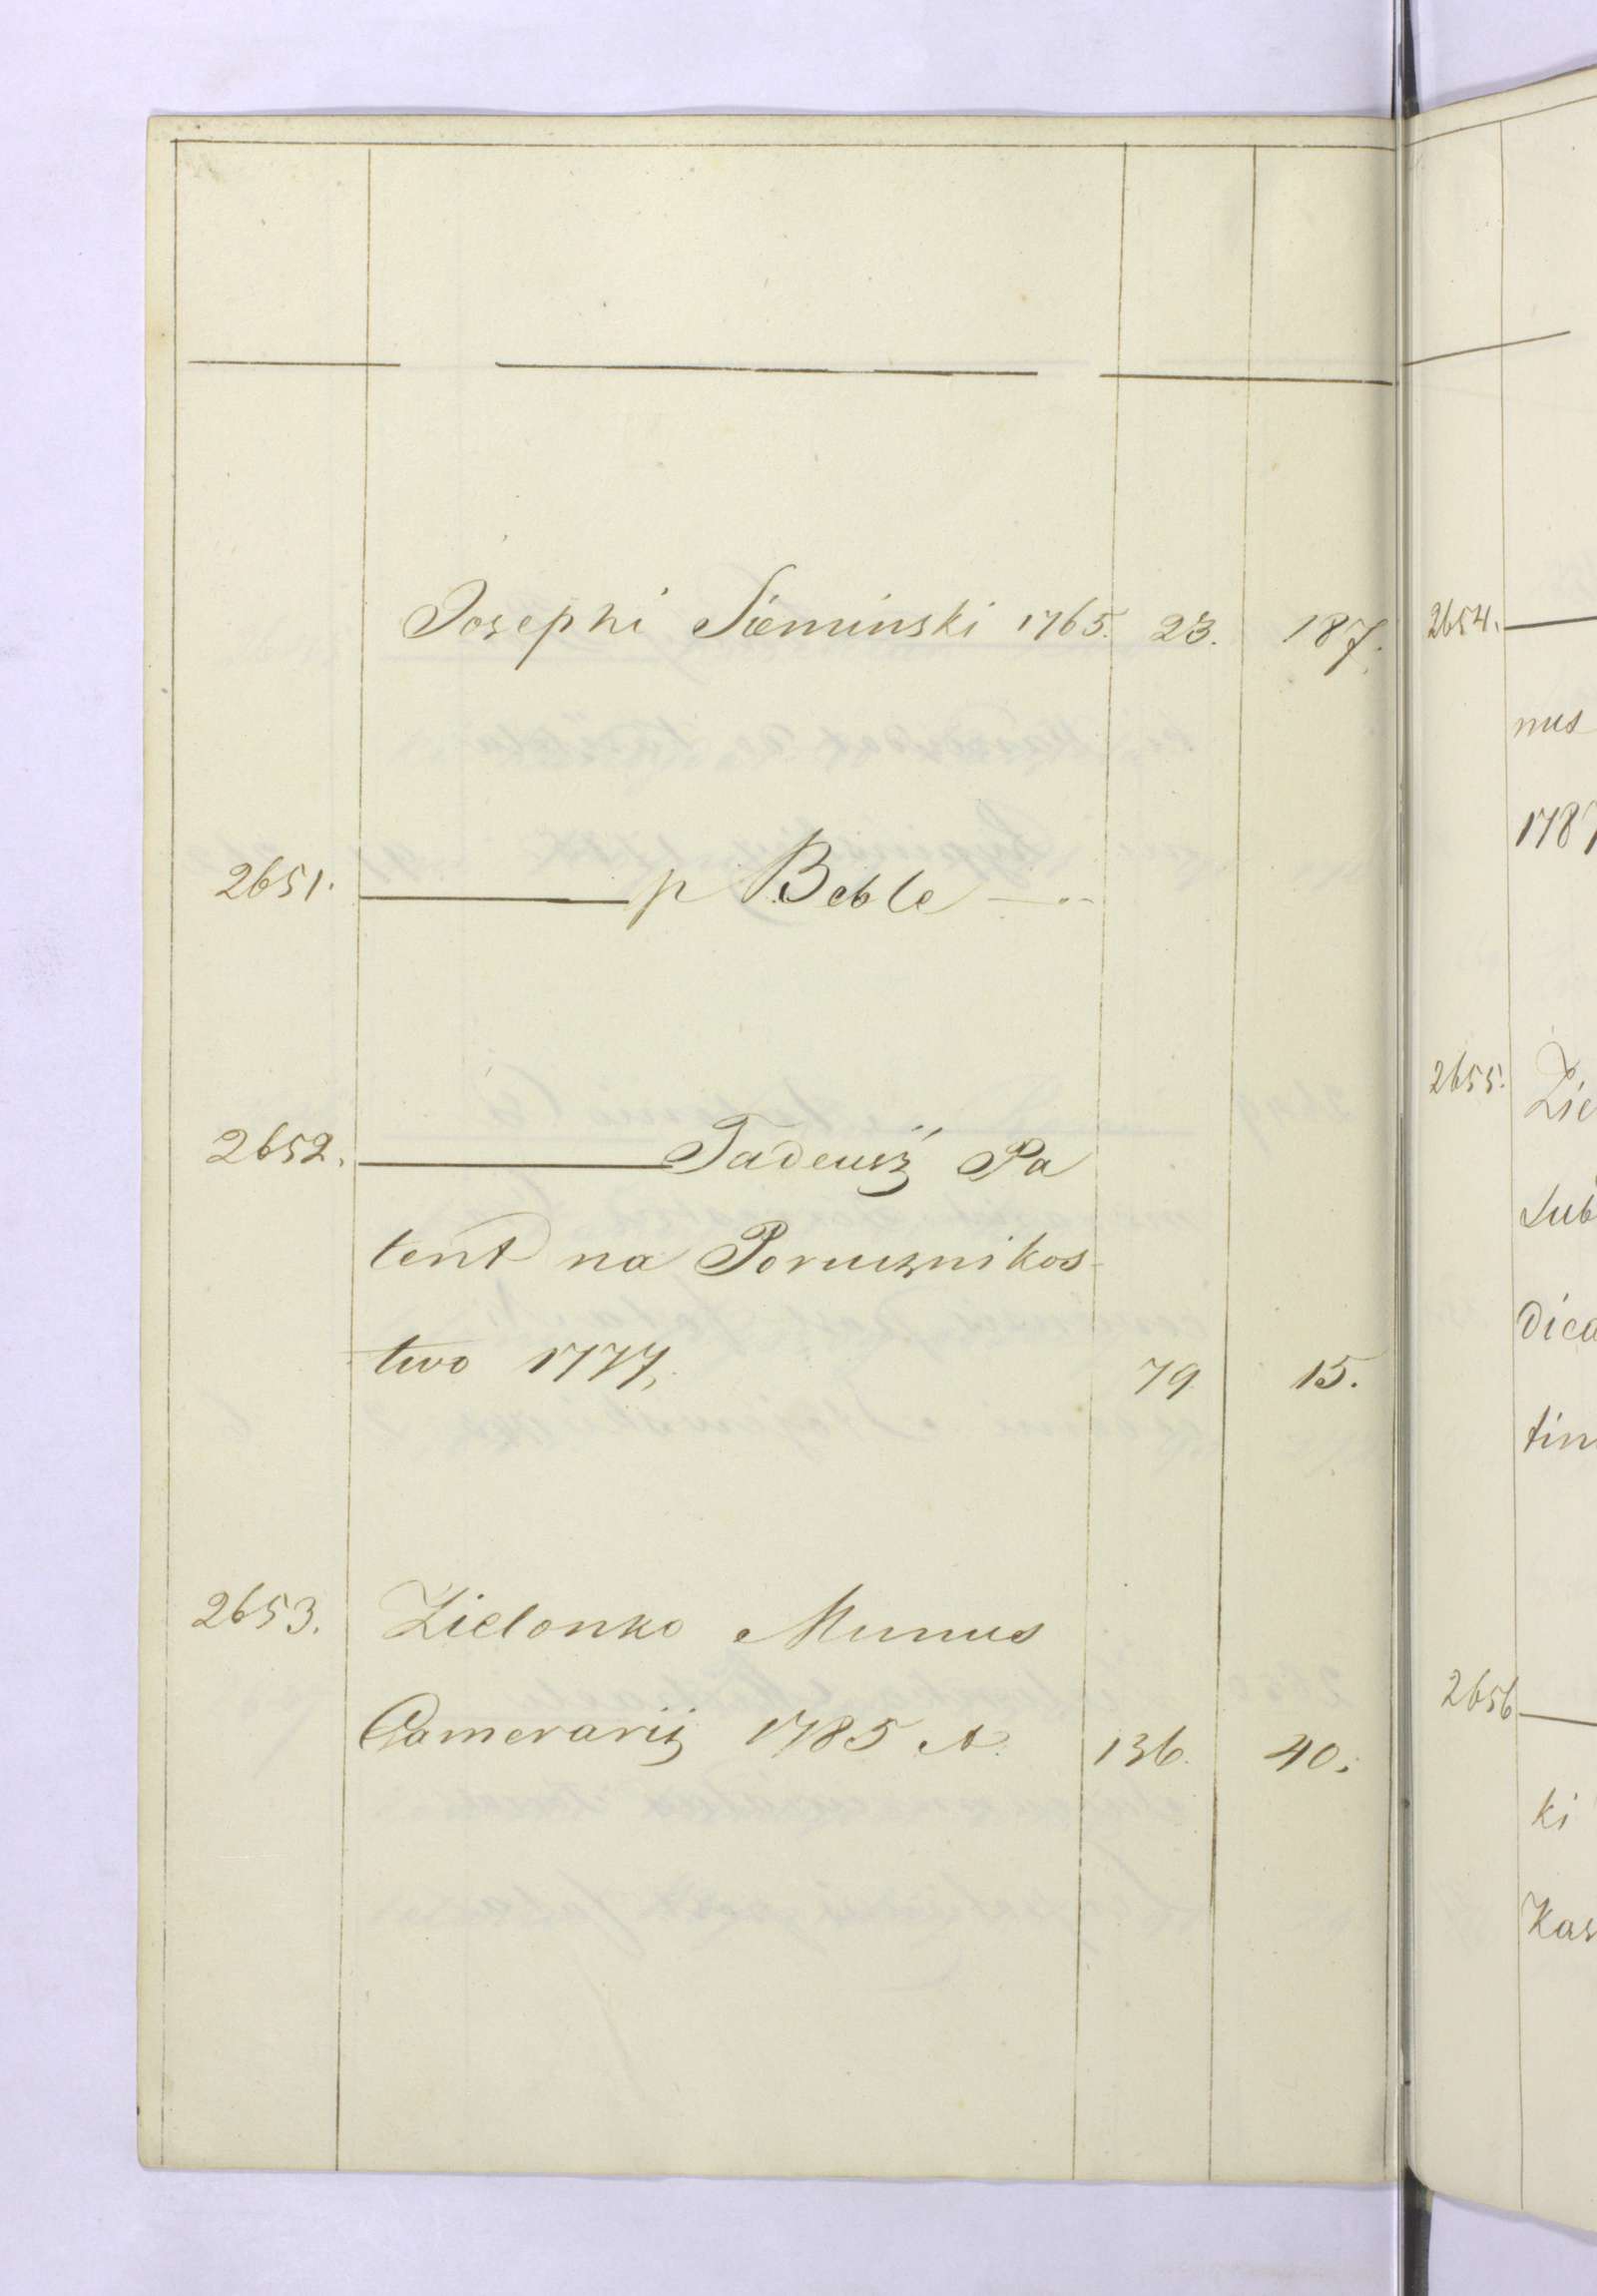 Josephi Siemiński 1765. 23. 187.
2651. ———— p Beble —
2652. ———— Tadeusz Pa
tent na Porucznikos-
two 1777. 79 15.
2653. Zielonko Munus
Camerarij 1785 A. 136. 40.
2654. ——
nus
1787
2655. Zie
Sub
dica
tin
2656 ——
ki
Kas